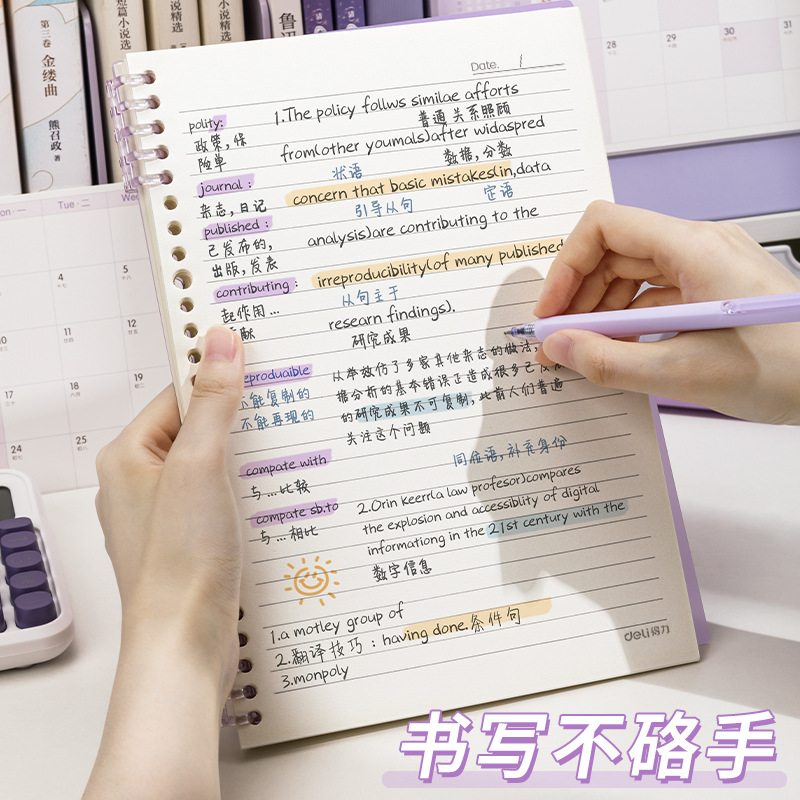 第三卷
金缕曲
熊召政 著
短篇小说精选
小说精选
小说精选
鲁迅
Date. /
polity:
政策,保
险单
1.The policy follws similae afforts
普通 关系照顾
from(other youmals)after widaspred
状语
数据,分数
journal:
杂志,日记
concern that basic mistakes(in,data
引导从句
定语
published:
已发布的,
出版,发表
analysis)are contributing to the
contributing:
起作用...
irreproducibility(of many published
从句主于
researn findings).
研究成果
eproduaible
不能复制的
不能再现的
从举放仿了多家其他杂志的做法,
据分析的基本错误正造成很多已发
的研究成果不可复制,此前人们普遍
关注这个问题
compate with
与...比较
同位语,补充身份
compate sb.to
与...相比
2.Orin keerr(a law profesor)compares
the explosion and accessiblity of digital
informationg in the 21st century with the
数字信息
1.a motley group of
2.翻译技巧:having done.条件句
3.monpoly
deli得力
Tue·二
We
4
5
11
12
18
19
24
25
28
29
30
31
书写不硌手